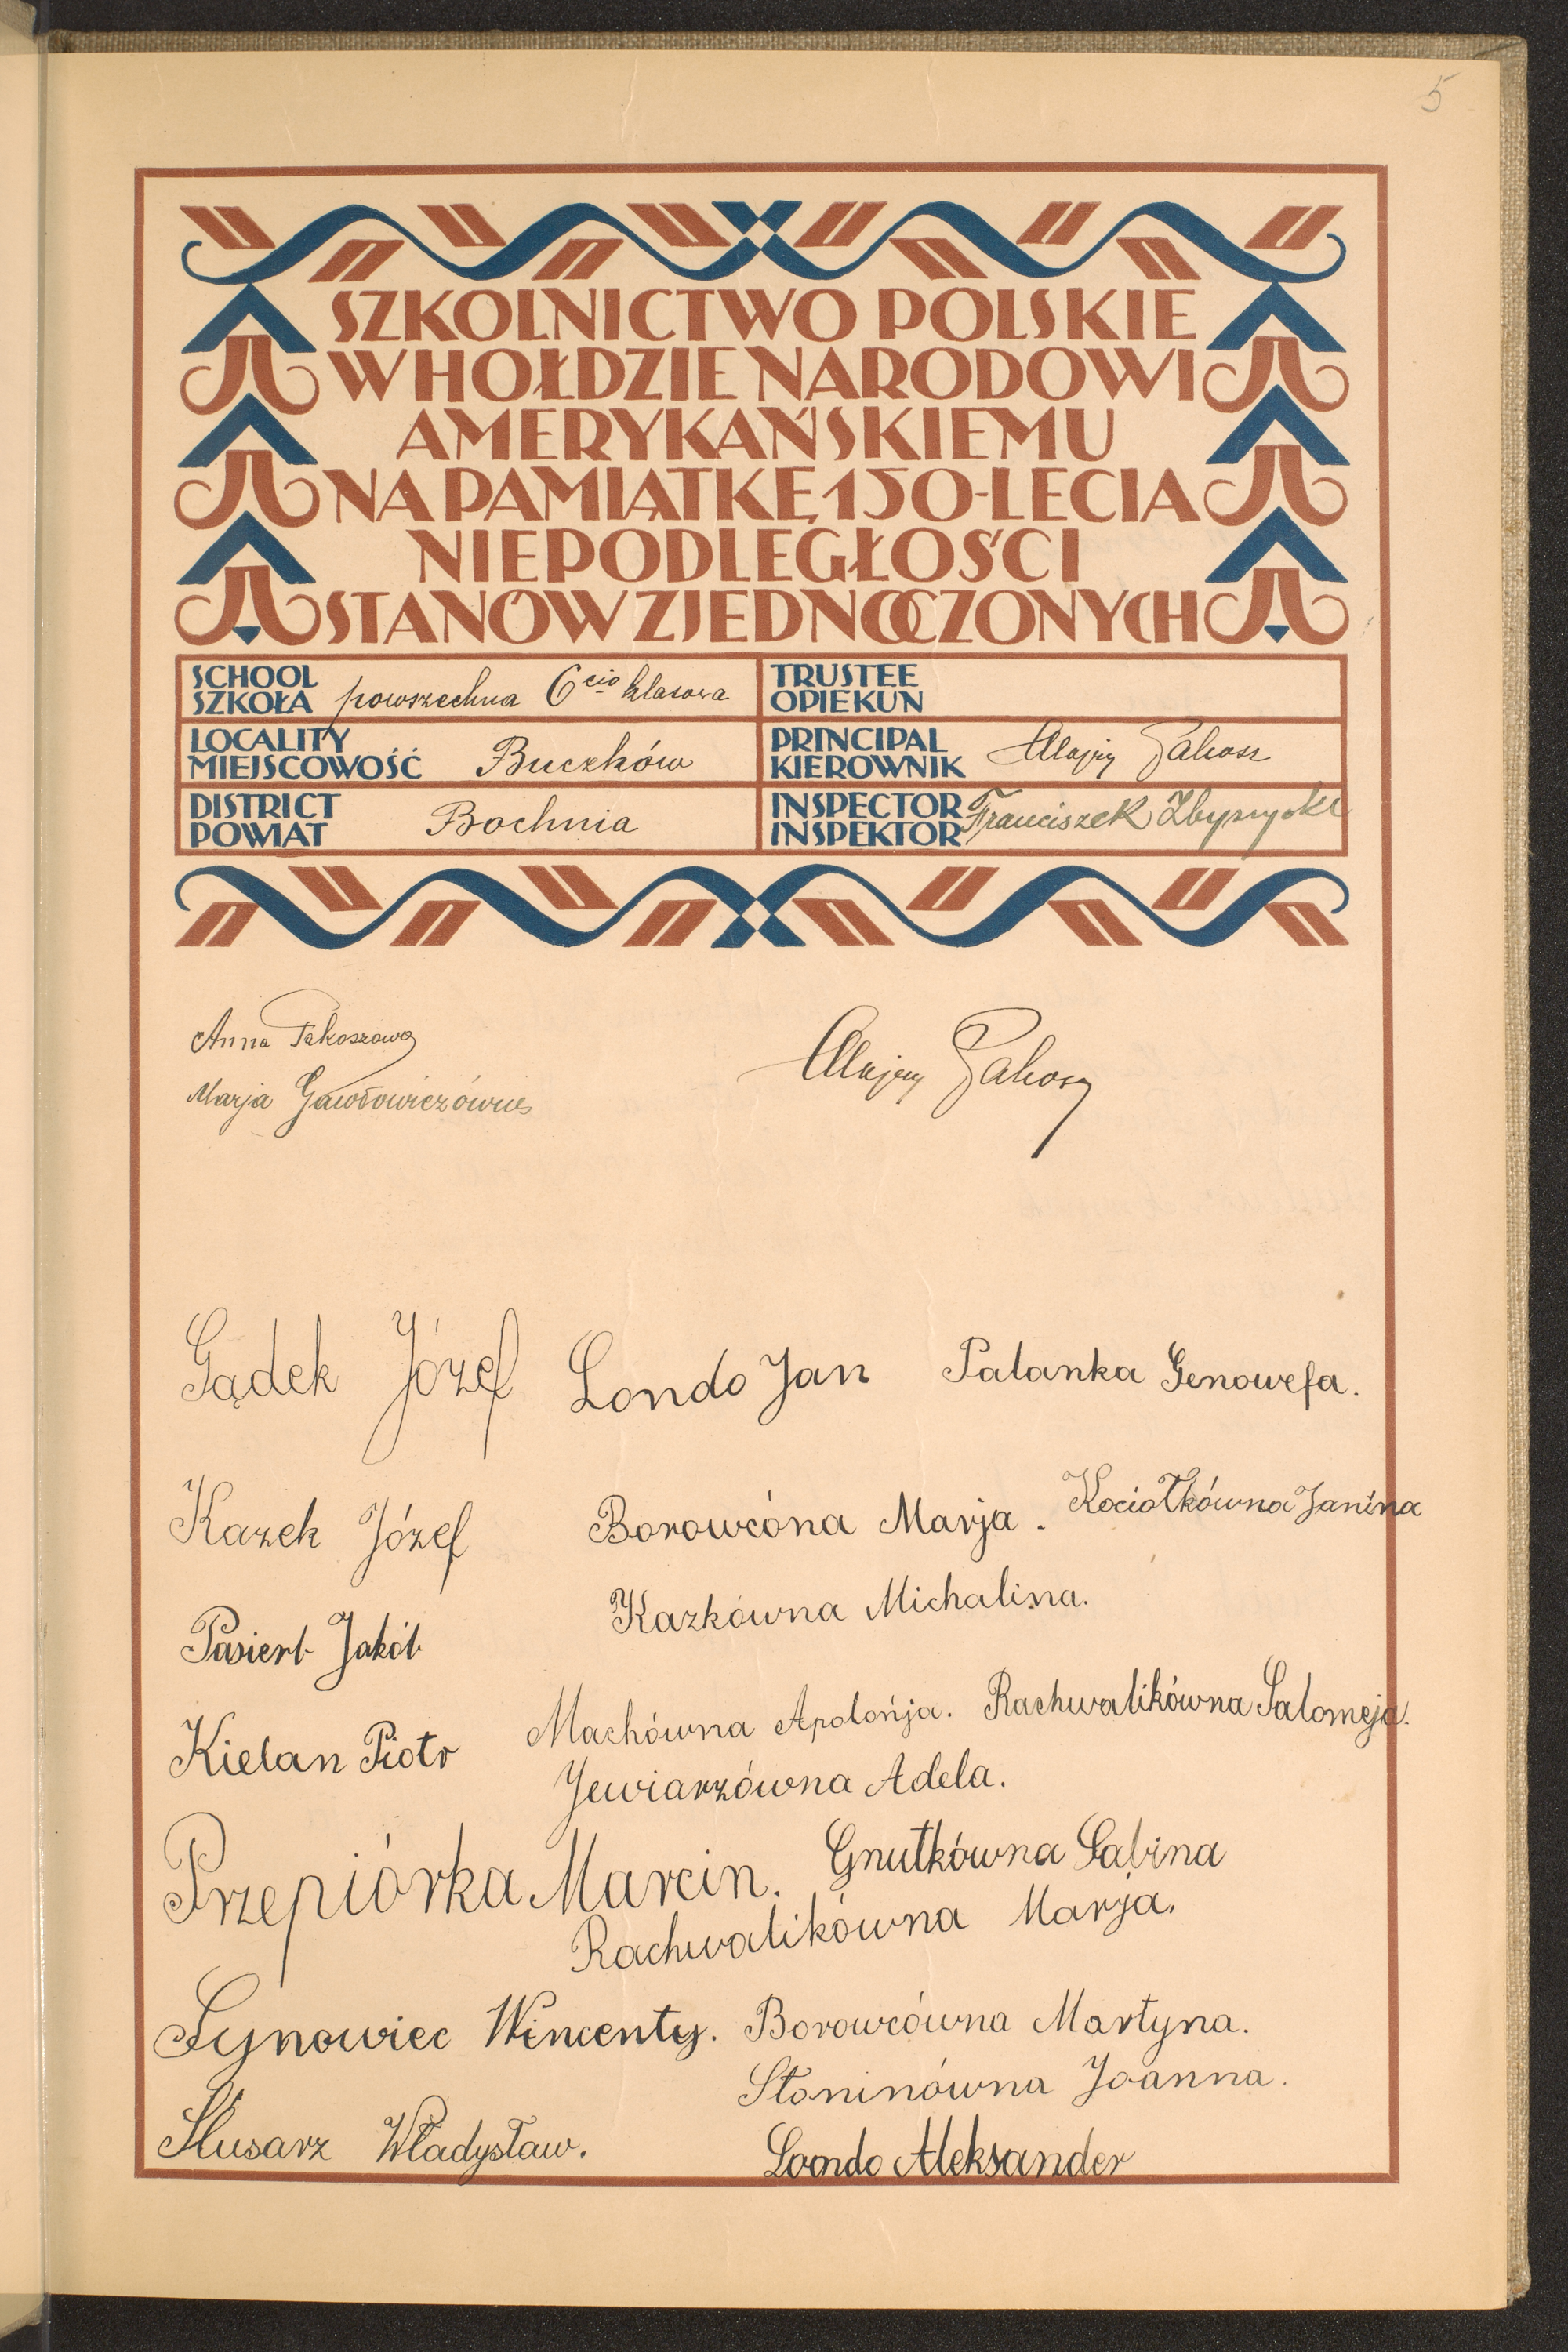 5
SZKOLNICTWO POLSKIE
W HOŁDZIE NARODOWI
AMERYKAŃSKIEMU
NA PAMIĄTKĘ 150-LECIA
NIEPODLEGŁOŚCI
STANÓW ZJEDNOCZONYCH
SCHOOL
SZKOŁA powszechna 6cio klasowa
TRUSTEE
OPIEKUN
LOCALITY
MIEJSCOWOŚĆ Buczków
PRINCIPAL
KIEROWNIK Alojzy Pakosz
DISTRICT
POWIAT Bochnia
INSPECTOR
INSPEKTOR Franciszek
Anna Pakoszowa
Marja Gawłowiczówna
Alojzy Pakosz
Gądek Józef
Londo Jan
Palanka Genowefa.
Kazek Józef
Borowcóna Marja.
Kociołkówna Janina
Pasierb Jakób
Kazkówna Michalina.
Kielan Piotr
Machówna Apolonja.
Rachwalikówna Salomeja.
Jewiarzówna Adela.
Przepiórka Marcin.
Gnutkówna Sabina
Rachwalikówna Marja.
Synowiec Wincenty.
Borowcówna Martyna.
Słoninówna Joanna.
Ślusarz Władysław.
Londo Aleksander